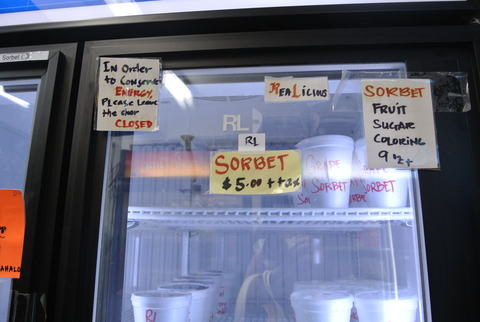 Sorbet
In Order
to Conserve
ENERGY,
PLease Leave
the door
CLOSED
ReaLicious
RL
RL
SORBET
$5.00 + tax
SORBET
FRUIT
SUGAR
COLORING
9 oz+
GRAPE
SORBET
SORBET
RL
AHALO